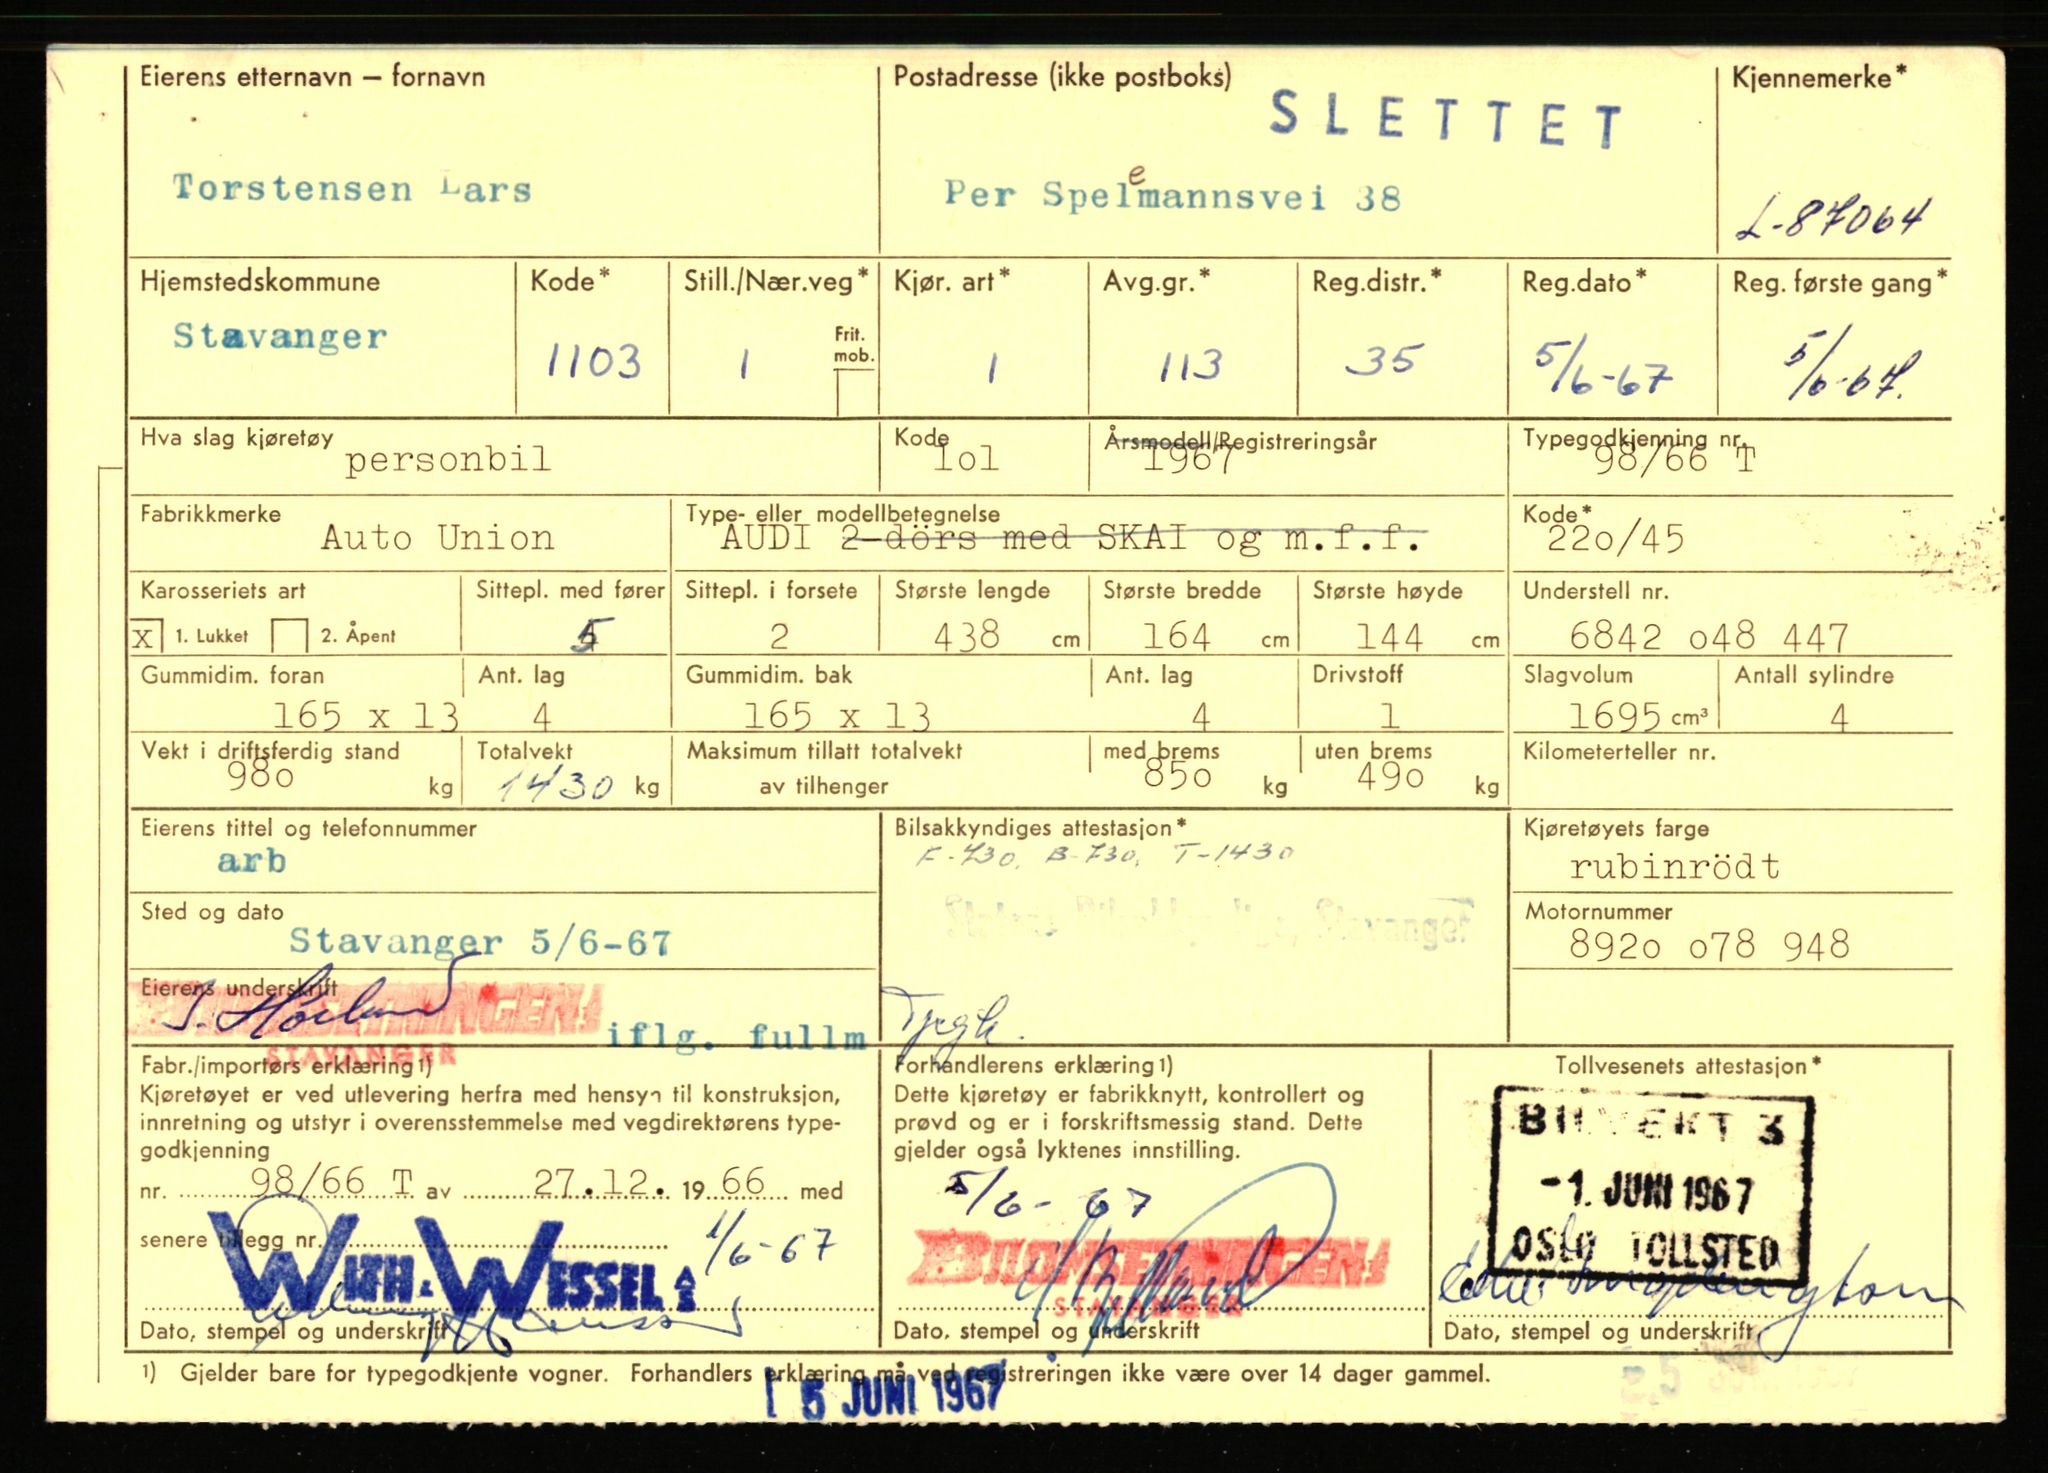 Eierens etternavn – fornavn
Torstensen Lars
Postadresse (ikke postboks)
SLETTET
e
Per Spelmannsvei 38
Kjennemerke*
L-87064
Hjemstedskommune
Stavanger
Kode*
1103
Still./Nær.veg*
1
Frit. mob.
Kjør. art*
1
Avg.gr.*
113
Reg.distr.*
35
Reg.dato*
5/6-67
Reg. første gang*
5/6-67.
Hva slag kjøretøy
personbil
Kode
1o1
Årsmodell/Registreringsår
1967
Typegodkjenning nr.
98/66 T
Fabrikkmerke
Auto Union
Type- eller modellbetegnelse
AUDI 2-dörs med SKAI og m.f.f.
Kode*
22o/45
Karosseriets art
X 1. Lukket 2. Åpent
Sittepl. med fører
5
Sittepl. i forsete
2
Største lengde
438 cm
Største bredde
164 cm
Største høyde
144 cm
Understell nr.
6842 o48 447
Gummidim. foran
165 x 13
Ant. lag
4
Gummidim. bak
165 x 13
Ant. lag
4
Drivstoff
1
Slagvolum
1695 cm³
Antall sylindre
4
Vekt i driftsferdig stand
98o kg
Totalvekt
1430 kg
Maksimum tillatt totalvekt
av tilhenger
med brems
85o kg
uten brems
49o kg
Kilometerteller nr.
Eierens tittel og telefonnummer
arb
Bilsakkyndiges attestasjon*
F-730, B-730, T-1430
Stavanger
Kjøretøyets farge
rubinrödt
Sted og dato
Stavanger 5/6-67
Motornummer
892o o78 948
Eierens underskrift
STAVANGER
iflg. fullm
Fabr./importørs erklæring 1)
Kjøretøyet er ved utlevering herfra med hensyn til konstruksjon,
innretning og utstyr i overensstemmelse med vegdirektørens type-
godkjenning
nr. 98/66 T av 27.12. 1966 med
senere tillegg nr.
1/6-67
WITH & WESSEL A/S
Dato, stempel og underskrift
Forhandlerens erklæring 1)
Dette kjøretøy er fabrikknytt, kontrollert og
prøvd og er i forskriftsmessig stand. Dette
gjelder også lyktenes innstilling.
5/6-67
STAVANGER
Dato, stempel og underskrift
Tollvesenets attestasjon*
BILVEKT 3
-1. JUNI 1967
OSLO TOLLSTED
Dato, stempel og underskrift
1) Gjelder bare for typegodkjente vogner. Forhandlers erklæring må ved registreringen ikke være over 14 dager gammel.
5 JUNI 1967